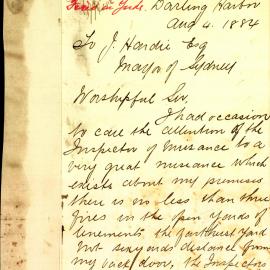 Darling Harbor
Aug 4. 1884
To J. Hardie Esq
Mayor of Sydney
Worshipful Sir,
I had occasion
to care the attention of the
Inspector of nuisance to a
very great nuisance which
exists about my premises
there is no less than three
fires in the open yards of
tenements the furthest yard
not six yards distance from
my back door, the Inspectors